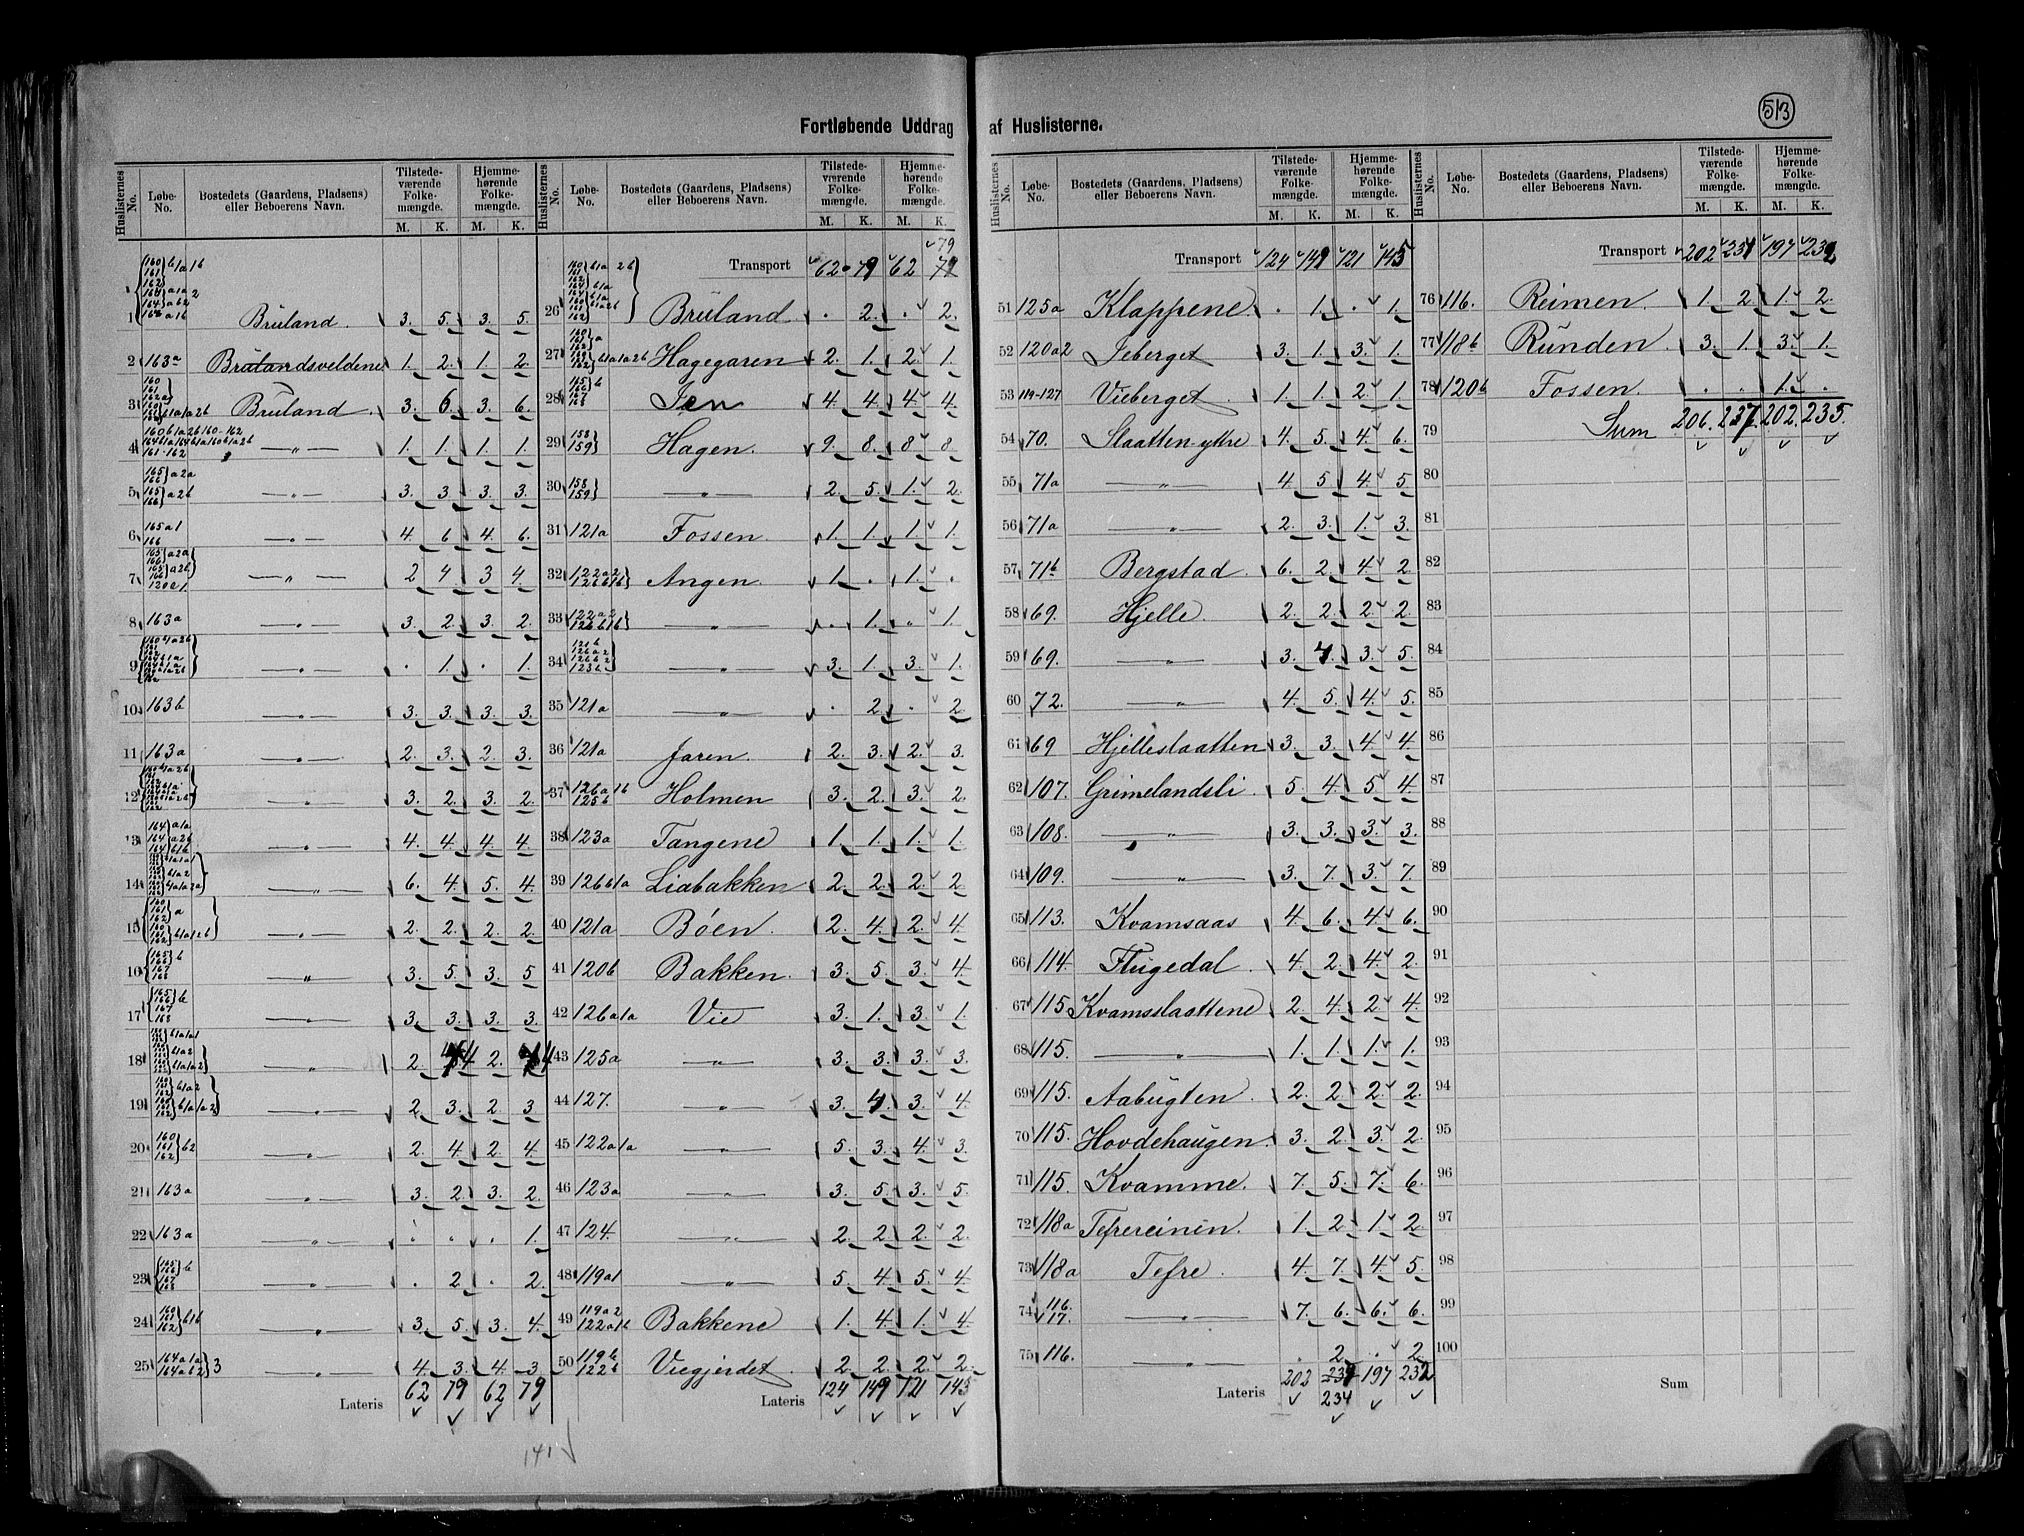 513
Fortløbende Uddrag af Huslisterne.
Huslisternes No. Løbe-No. Bostedets (Gaardens, Pladsens) eller Beboerens Navn. Tilstedeværende Folkemængde. M. K. Hjemmehørende Folkemængde. M. K.
1 Bruland. 3. 5. 3. 5.
2 163a Brulandsveldene 1. 2. 1. 2.
3 Bruland. 3. 6. 3. 6.
4 — „ — 1. 1. 1. 1.
5 165 166 a2a 165 166 a2b — „ — 3. 3. 3. 3.
6 165a1 166 — „ — 4. 6. 4. 6.
7 165 166 a2a 165 166 a2b 120a1. — „ — 2 4 3 4.
8 163a — „ — 3. 2. 3. 2.
9 — „ — . 1. . 1.
10 163b — „ — 3. 3. 3. 3.
11 163a — „ — 2. 3. 2. 3.
12 — „ — 3. 2. 3. 2.
13 164 a1a 164 a2b 164 b1b — „ — 4. 4. 4. 4.
14 — „ — 6. 4. 5. 4.
15 — „ — 2. 2. 2. 2.
16 165 166 b 167 168 — „ — 3. 5. 3. 5
17 165 166 b 167 168 — „ — 3. 3. 3. 3.
18 — „ — 2. 4 2. 4
19 — „ — 2. 3. 2. 3
20 160 161 162 b2 — „ — 2. 4. 2. 4.
21 163a — „ — 3. 2. 3. 2.
22 163a — „ — . . . 1.
23 165 166 b 167 168 — „ — . 2. . 2.
24 160 161 162 b1b — „ — 3. 5. 3. 4.
25 164a1a 164ab2 3 — „ — 4. 3. 4. 3.
Lateris 62 79 62 79
141
Huslisternes No. Løbe-No. Bostedets (Gaardens, Pladsens) eller Beboerens Navn. Tilstedeværende Folkemængde. M. K. Hjemmehørende Folkemængde. M. K.
79
Transport 62 79 62 79
26 Bruland . 2. . 2.
27 Hagegaren 2. 1. 2. 1.
28 165 166 b 167 168 Jen 4. 4. 4. 4.
29 158 159 Hagen. 9. 8. 8 8.
30 158 159 — „ — 2. 5. 1. 2.
31 121a Fossen. 1. 1. 1. 1.
32 122a2 126b1b Angen. 1. . 1. .
33 122a2 126b1b — „ — . 1. . 1.
34 — „ — 3. 1. 3. 1.
35 121a — „ — . 2. . 2.
36 121a Jaren. 2. 3. 2. 3.
37 126a1b 125b Holmen 3. 2. 3. 2.
38 123a Tangene 1. 1. 1. 1.
39 126b1a Liabakken 2. 2. 2. 2.
40 121a Bøen. 2. 4. 2. 4.
41 120b Bakken. 3. 5. 3. 4.
42 126a1a Vie 3. 1. 3. 1.
43 125a — „ — 3. 3. 3. 3.
44 127. — „ — 3. 4. 3. 4.
45 122a1a — „ — 5. 3. 4. 3.
46 123a — „ — 3. 5. 3. 5.
47 124. — „ — 2. 2. 2. 2.
48 119a1 — „ — 5. 4. 5. 4.
49 119a2 122a1b Bakkene 1. 4. 1. 4.
50 119b 122b Viegjerdet 2. 2. 2. 2.
Lateris 124 149 121 145
Huslisternes No. Løbe-No. Bostedets (Gaardens, Pladsens) eller Beboerens Navn. Tilstedeværende Folkemængde. M. K. Hjemmehørende Folkemængde. M. K.
Transport 124 149 121 145
51 125a Klappene. . 1. . 1.
52 120a2 Jeberget 3. 1. 3. 1.
53 119-127 Vieberget 1. 1. 2. 1.
54 70. Slaatten yttre 4. 5. 4. 6.
55 71a — „ — 4. 5 4. 5
56 71a — „ — 2. 3. 1. 3.
57 71b Bergstad. 6. 2. 4. 2.
58 69. Hjelle. 2. 2. 2. 2.
59 69. — „ — 3. 4. 3. 5.
60 72. — „ — 4. 5. 4. 5.
61 69 Hjelleslaatten 3. 3. 4. 4.
62 107. Grimelandsli 5. 4. 5. 4.
63 108. — „ — 3. 3. 3. 3.
64 109. — „ — 3. 7. 3. 7.
65 113. Kvamsaas 4. 6. 4. 6.
66 114. Flugedal. 4. 2. 4. 2.
67 115. Kvamsslaattene 2. 4. 2. 4.
68 115. — „ — 1. 1. 1. 1.
69 115. Aabugten. 2. 2. 2. 2.
70 115. Hovdehaugen. 3. 2. 3. 2.
71 115. Kvamme. 7. 5. 7. 6.
72 118a Tefrereinen. 1. 2. 1. 2.
73 118a Tefre. 4. 7. 4. 5.
74 116. 117. — „ — 7. 6. 6. 6.
75 116. — „ — . 2. . 2.
Lateris 202 197 232
234
Huslisternes No. Løbe-No. Bostedets (Gaardens, Pladsens) eller Beboerens Navn. Tilstedeværende Folkemængde. M. K. Hjemmehørende Folkemængde. M. K.
Transport 202 234 197 232
76 116. Reimen 1. 2. 1. 2.
77 118b Runden 3. 1. 3. 1.
78 120b Fossen. . . 1. .
79 Sum 206. 237. 202. 235.
80
81
82
83
84
85
86
87
88
89
90
91
92
93
94
95
96
97
98
99
100
Sum